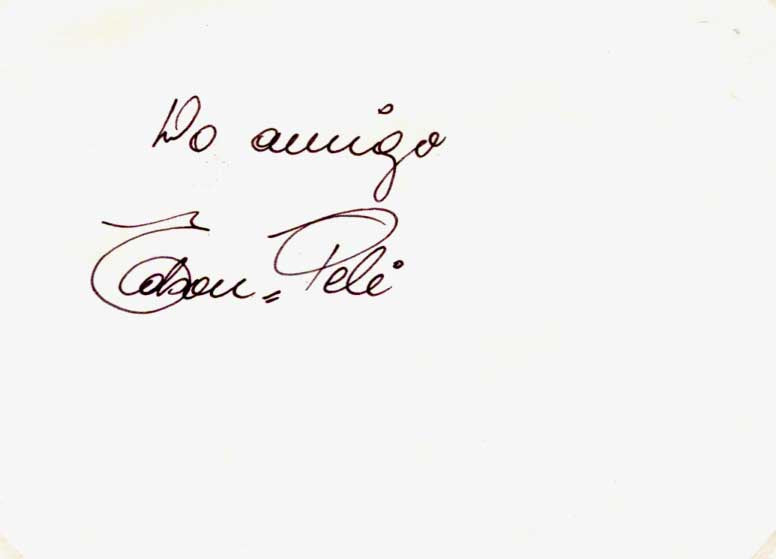 Do amigo
Edson = Pelé